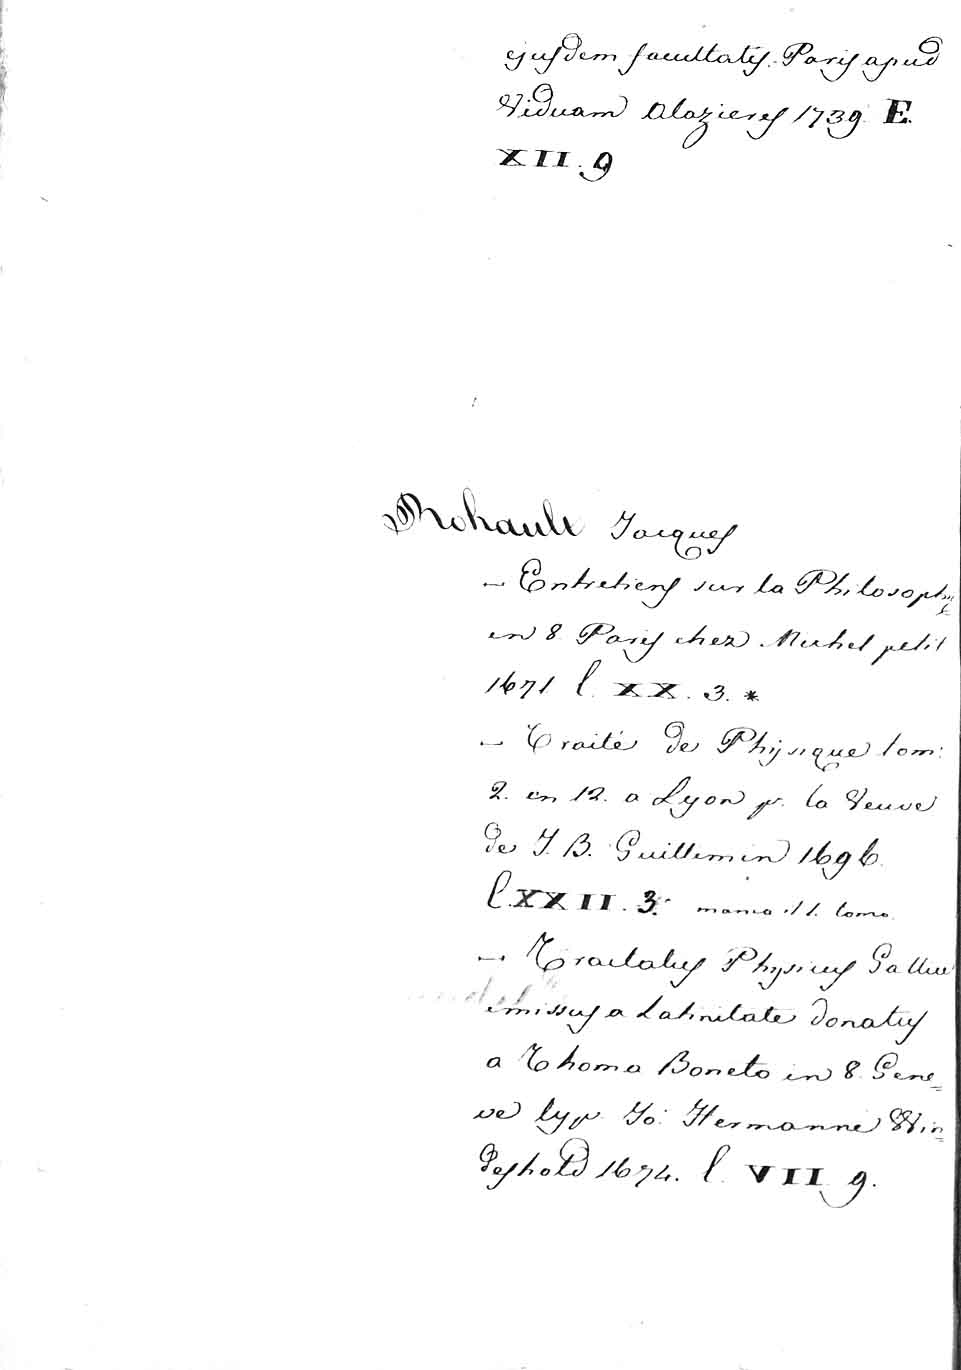 ejusdem facultatis. Paris apud
Viduam Mazieres 1739 E.
XII. 9
Rohault Jacques
— Entretiens sur la Philosophie
en 8. Paris chez Michel petit
1671 l. XX. 3. *
— Traité de Physique tom:
2. en 12. a Lyon p. la Veuve
de J. B. Guillemin 1696.
l. XXII. 3. manca il 1. tomo.
— Tractatus Physicus Gallice
emissus a Latinitate donatus
a Thoma Boneto in 8. Gene=
ve typ. Jo: Hermanne Win=
deshold 1674. l. VII 9.